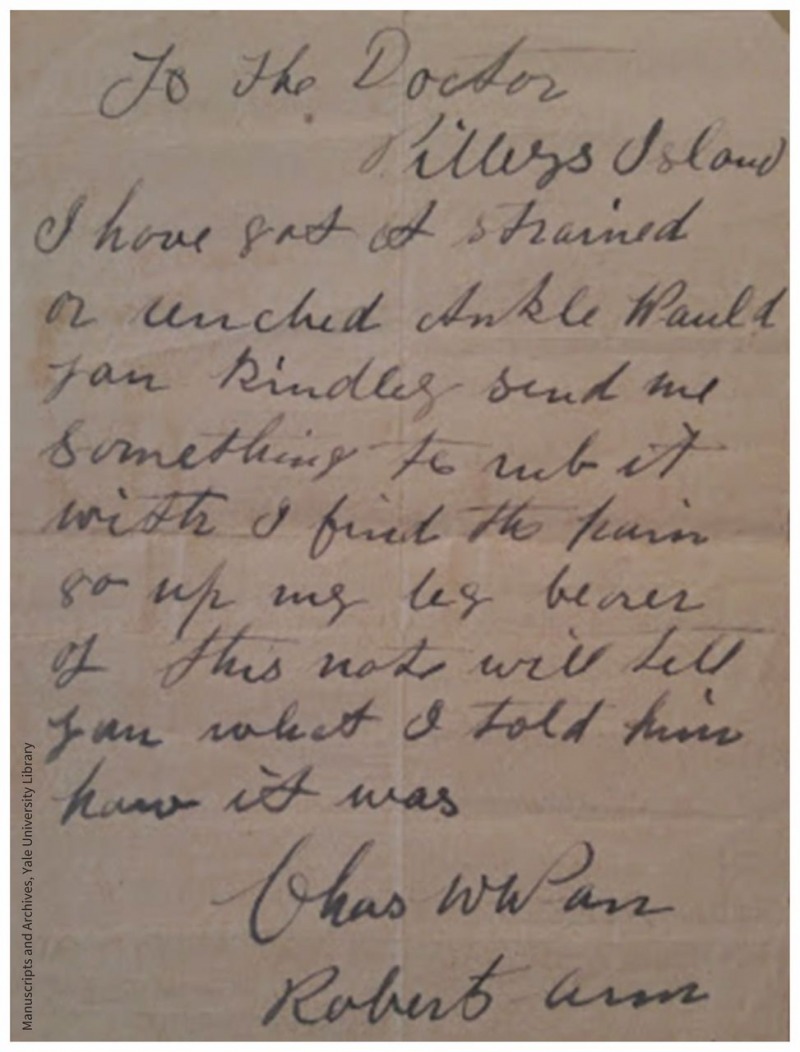 To the Doctor
Pilleys Island
I have got a strained
or unched Ankle Would
you Kindley send me
something to rub it
with I find the pain
go up my leg bearer
of this note will tell
you what I told him
how it was
Chas
Roberts arm
Manuscripts and Archives, Yale University Library